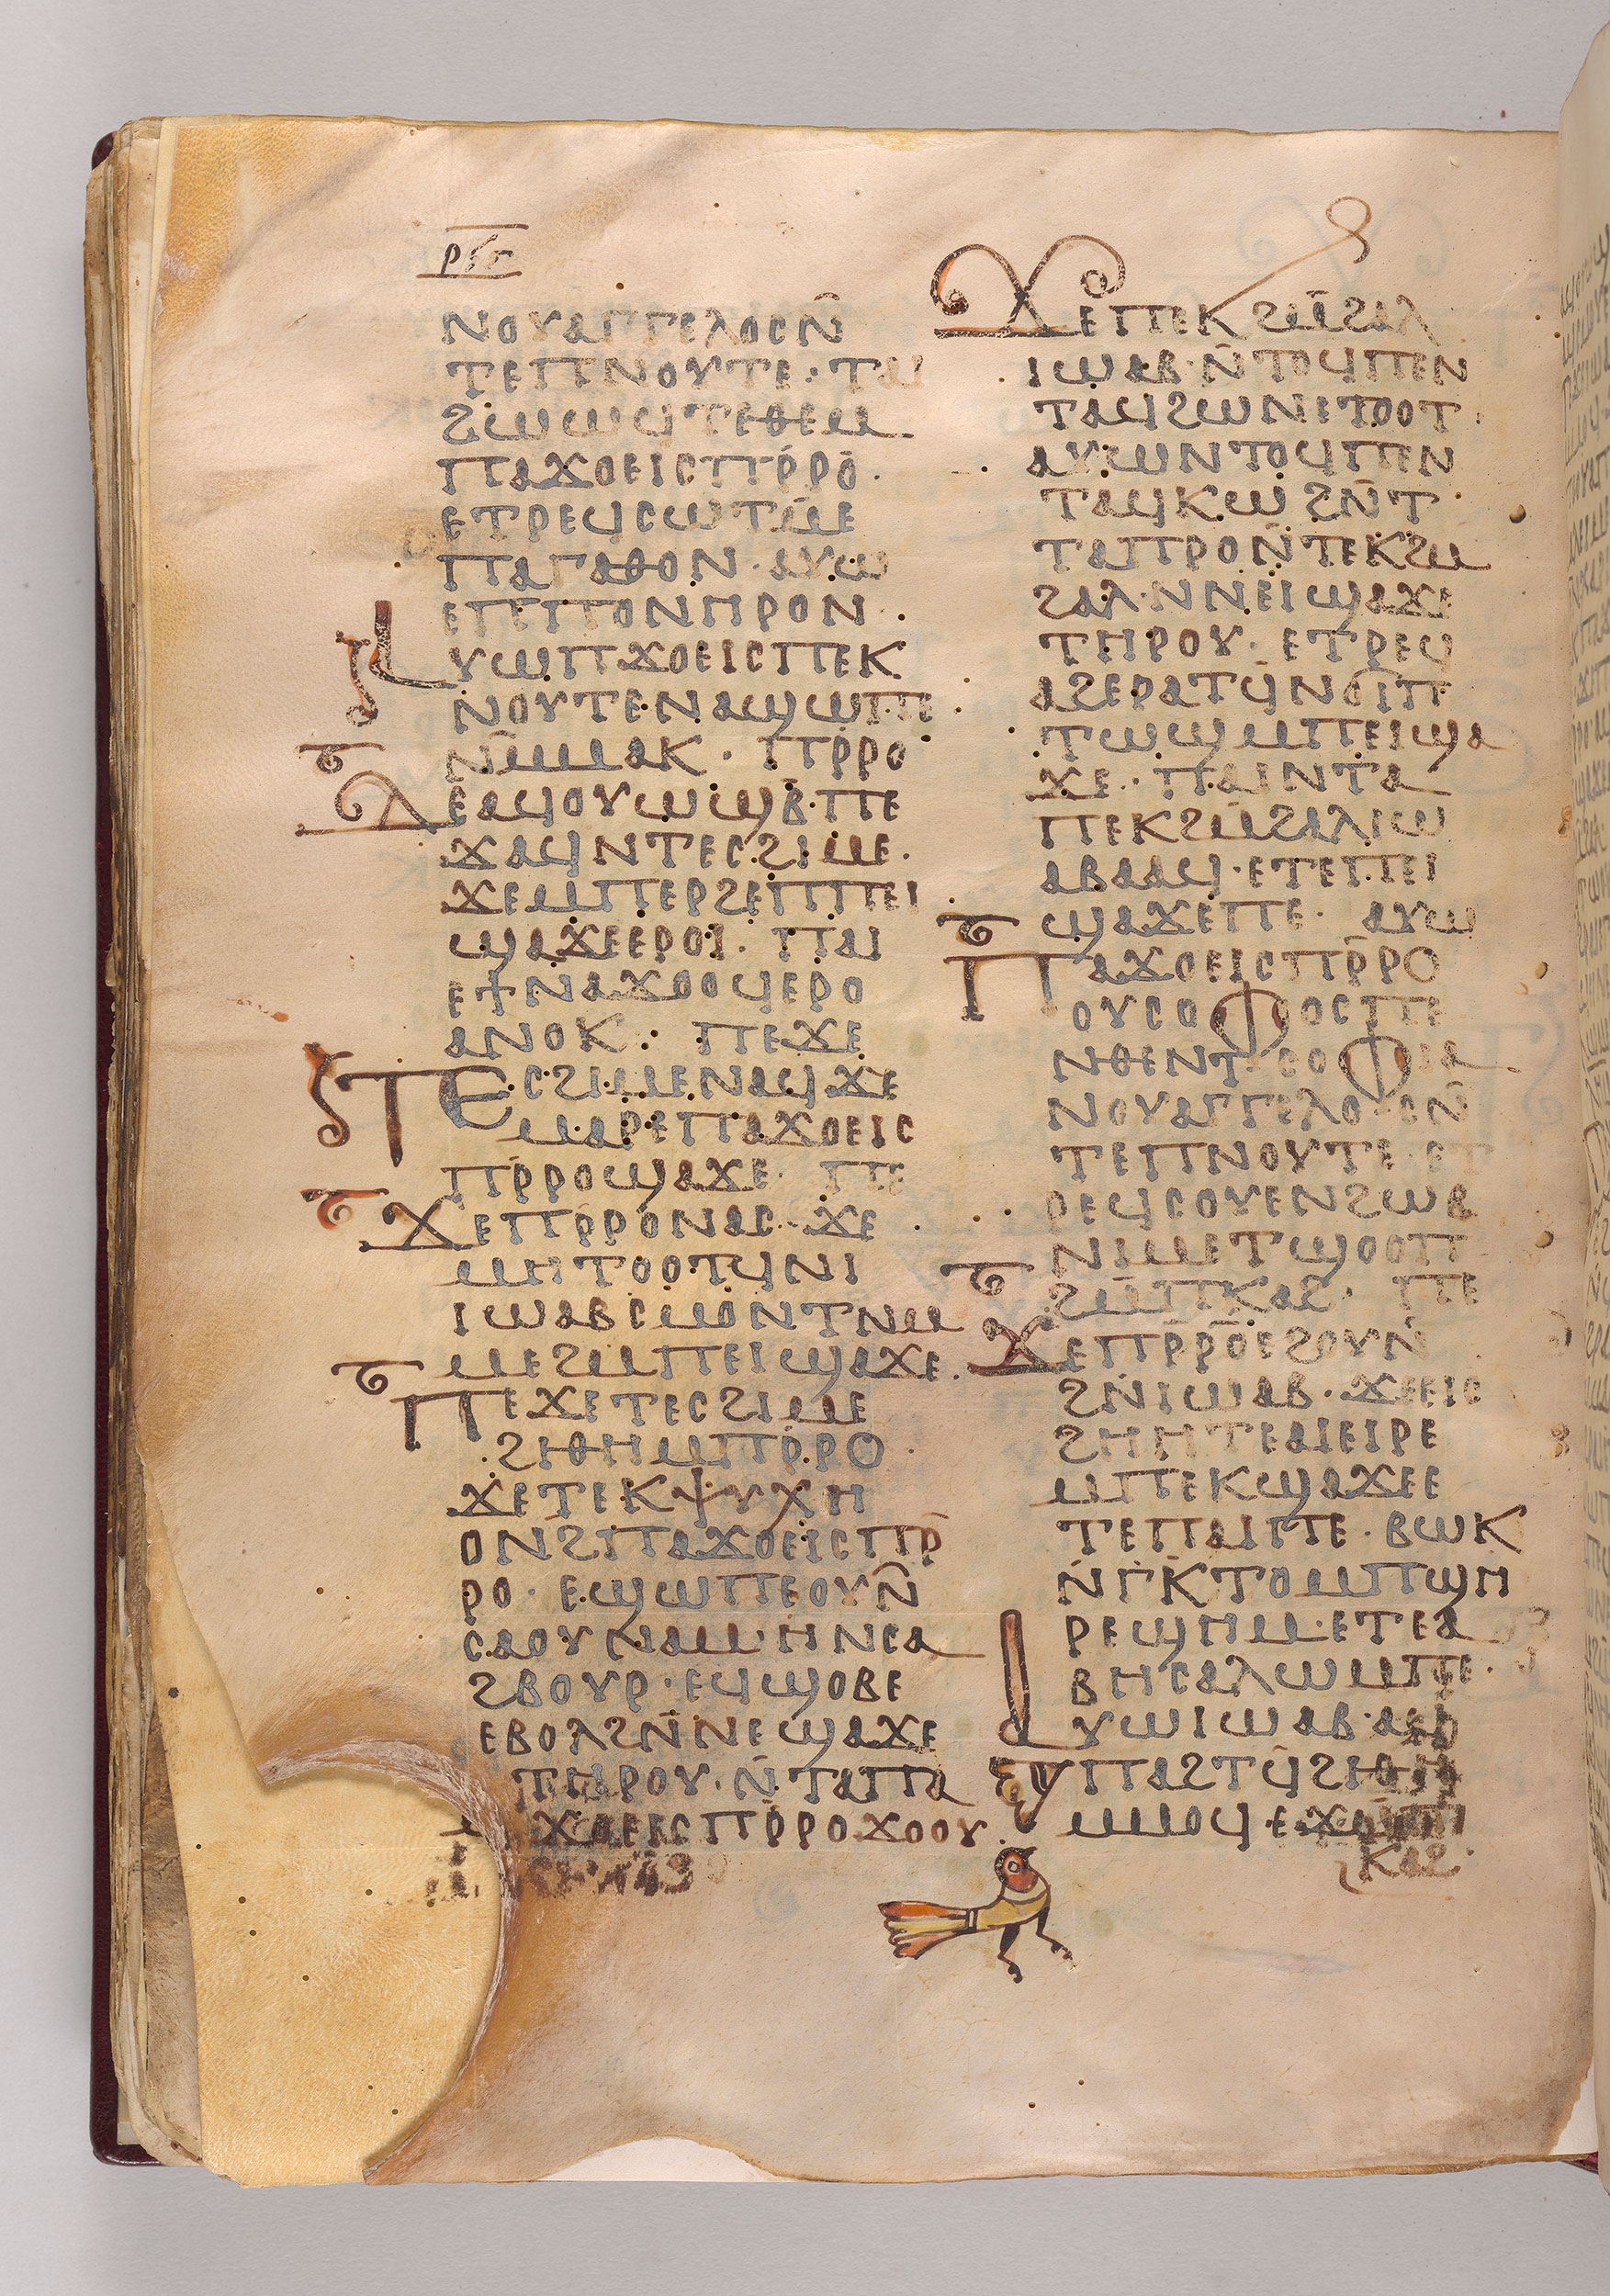 ⲛⲟⲩⲁⲅⲅⲉⲗⲟⲥⲛ̄
ⲧⲉⲡⲛⲟⲩⲧⲉ· ⲧⲁⲓ
ϩⲱⲱϥⲧⲉⲑⲉⲙ
ⲡⲁϫⲟⲉⲓⲥⲡⲣ̄ⲣⲟ·
ⲉⲧⲣⲉϥⲥⲱⲧⲙ̄ⲉ
ⲡⲁⲅⲁⲑⲟⲛ· ⲁⲩⲱ
ⲉⲡⲉⲡⲟⲛⲏⲣⲟⲛ·
ⲁⲩⲱⲡϫⲟⲉⲓⲥⲡⲉⲕ
ⲛⲟⲩⲧⲉⲛⲁϣⲱⲡⲉ
ⲛⲙ̄ⲙⲁⲕ· ⲡⲣ̄ⲣⲟ
ⲇⲉⲁϥⲟⲩⲱϣⲃ̄·ⲡⲉ
ϫⲁϥⲛⲧⲉⲥϩⲓⲙⲉ·
ϫⲉⲙⲡⲉⲣϩⲉⲡⲡⲉⲓ
ϣⲁϫⲉⲉⲣⲟⲓ· ⲡⲁⲓ
ⲉϯⲛⲁϫⲟⲟϥⲉⲣⲟ
ⲁⲛⲟⲕ: ⲡⲉϫⲉ
ⲧⲉⲥϩⲓⲙⲉⲛⲁϥϫⲉ
ⲙⲁⲣⲉⲡⲁϫⲟⲉⲓⲥ
ⲡⲣ̄ⲣⲟϣⲁϫⲉ· ⲡⲉ
ϫⲉⲡⲣ̄ⲣⲟⲛⲁⲥ· ϫⲉ
ⲙⲏⲧⲟⲟⲧϥⲛⲓ
ⲓⲱⲁⲃⲥⲙⲟⲛⲧⲛⲙ
ⲙⲉϩⲙⲡⲉⲓϣⲁϫⲉ·
ⲡⲉϫⲉⲧⲉⲥϩⲓⲙⲉ
ϩⲓⲑⲏⲙⲡⲣ̄ⲣⲟ·
ϫⲉⲧⲉⲕⲯⲩⲭⲏ
ⲟⲛϩ̄ⲡⲁϫⲟⲉⲓⲥⲡⲣ̄
ⲣⲟ· ⲉϣⲱⲡⲉⲟⲩⲛ̄
ⲥⲁⲟⲩⲛⲁⲙ·ⲏⲛⲥⲁ
ϩⲃⲟⲩⲣ·ⲉϥϣⲟⲃⲉ
ⲉⲃⲟⲗϩⲛ̄ⲛⲉϣⲁϫⲉ
ⲧⲏⲣⲟⲩ·ⲛ̄ⲧⲁⲡⲁ
ϫⲟⲉⲓⲥⲡⲣ̄ⲣⲟϫⲟⲟⲩ
ϫⲉⲡⲉⲕϩⲙ̄ϩⲁⲗ
ⲓⲱⲁⲃ·ⲛ̄ⲧⲟϥⲡⲉⲛ
ⲧⲁϥϩⲱⲛⲉⲧⲟⲟⲧ·
ⲁⲩⲱⲛⲧⲟϥⲡⲉⲛ
ⲧⲁϥⲕⲱϩⲛ̄ⲧ·
ⲧⲁⲡⲣⲟⲛ̄ⲧⲉⲕϩⲙ
ϩⲁⲗ·ⲛⲛⲉⲓϣⲁϫⲉ
ⲧⲏⲣⲟⲩ· ⲉⲧⲣⲉϥ
ⲁϩⲉⲣⲁⲧϥ̄ⲛϭⲓⲡ
ⲧⲱϣⲙⲡⲉⲓϣⲁ
ϫⲉ· ⲡⲁⲓⲛⲧⲁ
ⲡⲉⲕϩⲙ̄ϩⲁⲗⲓⲱ
ⲁⲃⲁⲁϥ·ⲉⲧⲉⲡⲉⲓ
ϣⲁϫⲉⲡⲉ· ⲁⲩⲱ
ⲡⲁϫⲟⲉⲓⲥⲡⲣ̄ⲣⲟ
ⲟⲩⲥⲟⲫⲟⲥⲡⲉ
ⲛⲑⲉⲛⲧⲥⲟⲫⲓⲁ
ⲛⲟⲩⲁⲅⲅⲉⲗⲟⲥⲛ̄
ⲧⲉⲡⲛⲟⲩⲧⲉ·ⲉⲧ
ⲣⲉϥⲥⲟⲩⲉⲛϩⲱⲃ
ⲛⲓⲙⲉⲧϣⲟⲟⲡ
ϩⲙ̄ⲡⲕⲁϩ· ⲡⲉ
ϫⲉⲡⲣ̄ⲣⲟⲉϩⲟⲩⲛ
ϩⲛ̄ⲓⲱⲁⲃ·ϫⲉⲉⲓⲥ
ϩⲏⲏⲧⲉⲁⲓⲉⲓⲣⲉ
ⲙⲡⲉⲕϣⲁϫⲉⲉ
ⲧⲉⲡⲁⲓⲡⲉ·ⲃⲱⲕ
ⲛ̄ⲅⲕⲧⲟⲙⲡϣⲏ
ⲣⲉϣⲏⲙ·ⲉⲧⲉⲁ
ⲃⲏⲥⲁⲗⲱⲙⲡⲉ·
ⲁⲩⲱⲓⲱⲁⲃ·ⲁϥ
ⲡⲁϩⲧϥ̄ϩⲓⲑⲏ
ⲙⲙⲟϥ·ⲉϫⲙ̄ⲡ
ⲕⲁϩ·